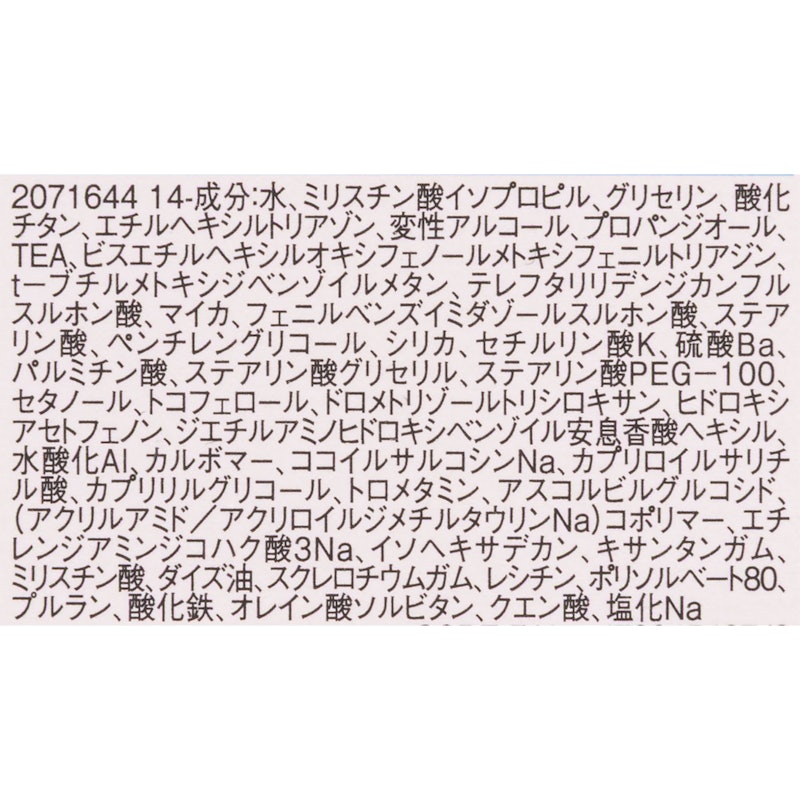 2071644 14-成分:水、ミリスチン酸イソプロピル、グリセリン、酸化
チタン、エチルヘキシルトリアゾン、変性アルコール、プロパンジオール、
TEA、ビスエチルヘキシルオキシフェノールメトキシフェニルトリアジン、
t－ブチルメトキシジベンゾイルメタン、テレフタリリデンジカンフル
スルホン酸、マイカ、フェニルベンズイミダゾールスルホン酸、ステア
リン酸、ペンチレングリコール、シリカ、セチルリン酸K、硫酸Ba、
パルミチン酸、ステアリン酸グリセリル、ステアリン酸PEG－100、
セタノール、トコフェロール、ドロメトリゾールトリシロキサン、ヒドロキシ
アセトフェノン、ジエチルアミノヒドロキシベンゾイル安息香酸ヘキシル、
水酸化Al、カルボマー、ココイルサルコシンNa、カプリロイルサリチ
ル酸、カプリリルグリコール、トロメタミン、アスコルビルグルコシド、
（アクリルアミド／アクリロイルジメチルタウリンNa）コポリマー、エチ
レンジアミンジコハク酸3Na、イソヘキサデカン、キサンタンガム、
ミリスチン酸、ダイズ油、スクレロチウムガム、レシチン、ポリソルベート80、
プルラン、酸化鉄、オレイン酸ソルビタン、クエン酸、塩化Na